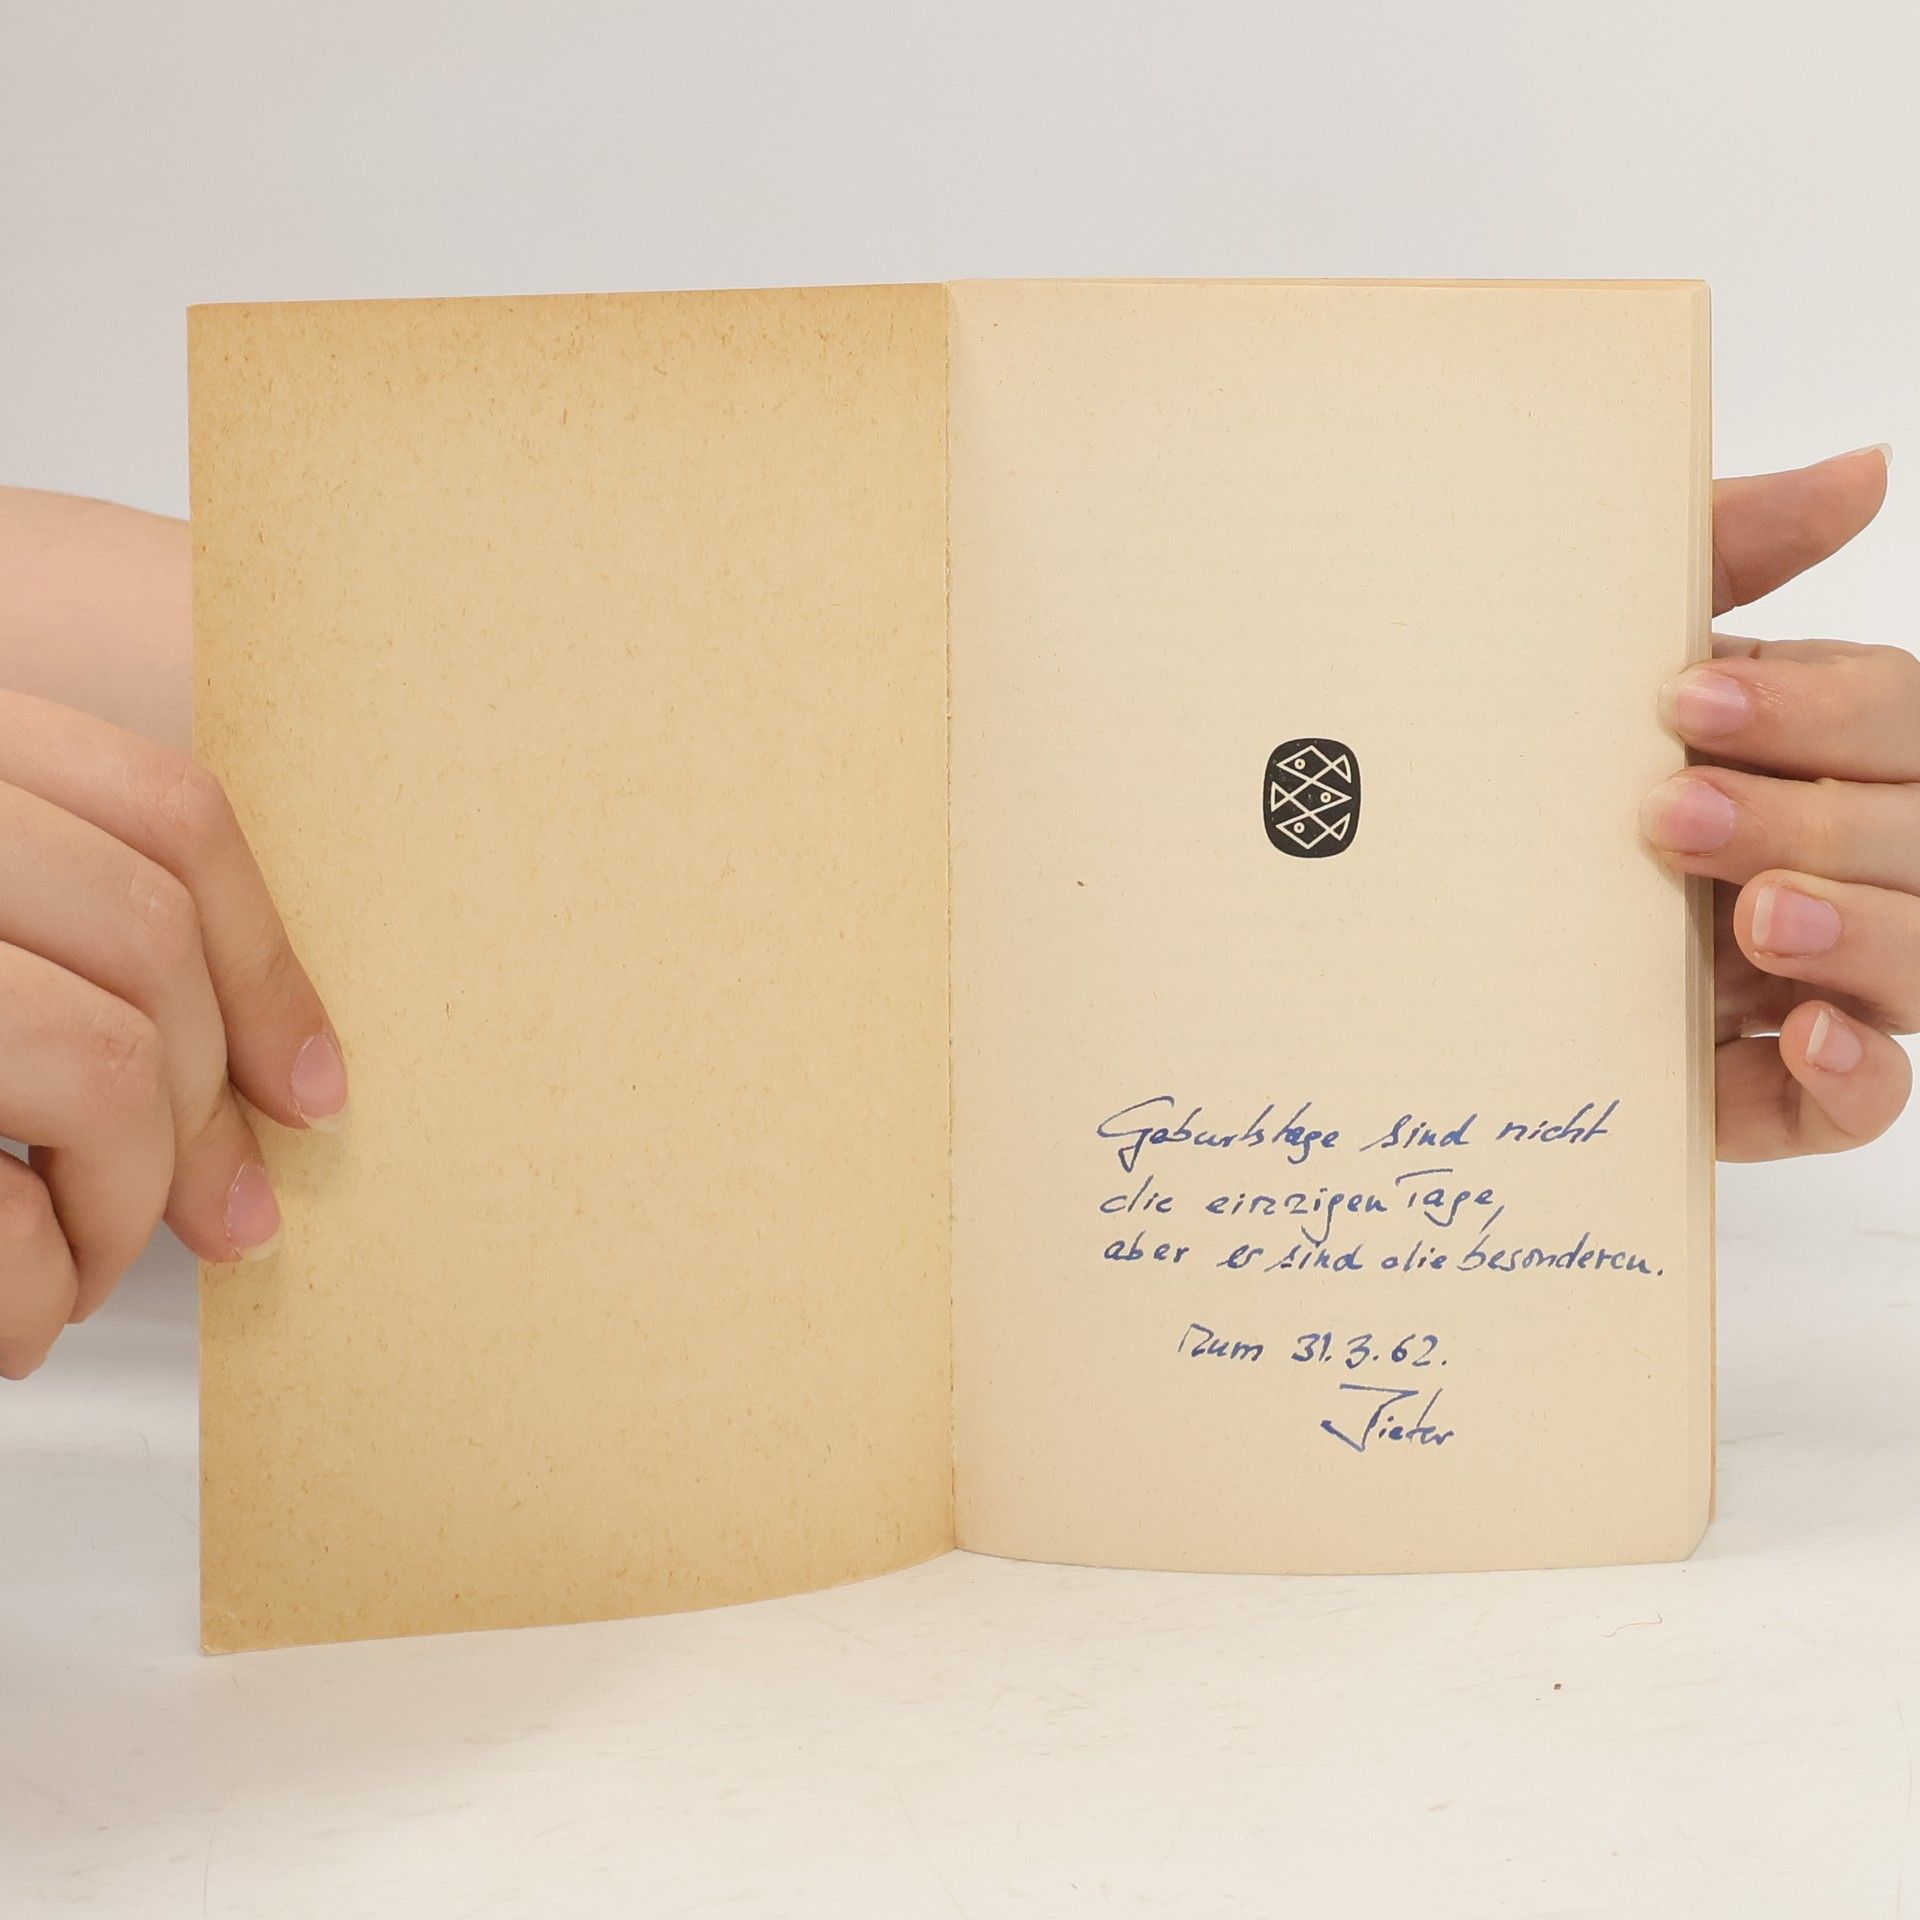 Geburtstage sind nicht
die einzigen Tage,
aber es sind die besonderen.
Zum 31.3.62.
Dieter